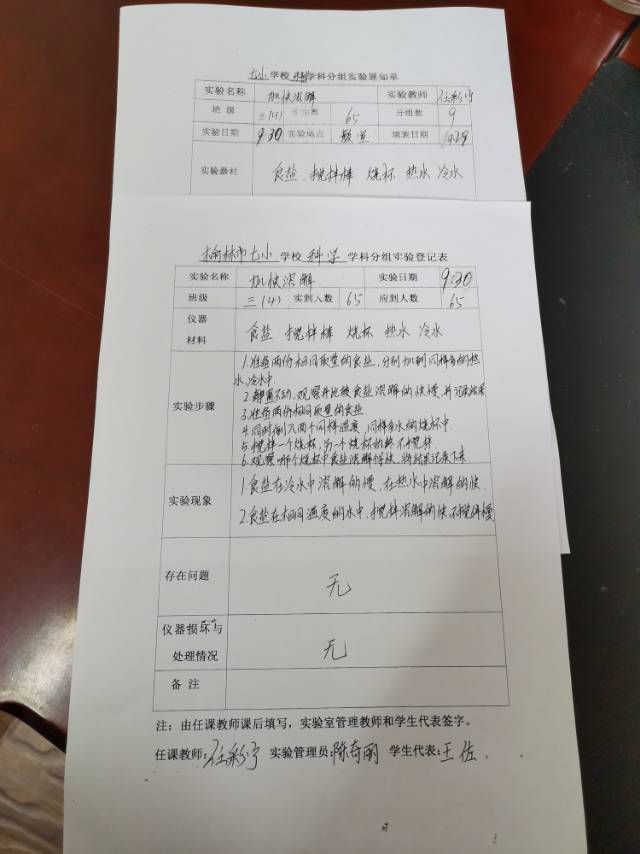 七小学校科学学科分组实验通知单
实验名称 加快溶解 实验教师 任彩宁
班 级 三(4) 学生数 65 分组数 9
实验日期 9.30 实验地点 教室 填表日期 9.29
实验器材 食盐、搅拌棒 烧杯 热水 冷水
榆林市七小 学校 科学 学科分组实验登记表
实验名称 加快溶解 实验日期 9.30
班级 三(4) 实到人数 65 应到人数 65
仪器
材料 食盐 搅拌棒 烧杯 热水 冷水
实验步骤
1.准备两份相同质量的食盐,分别加到同样多的热
水、冷水中.
2.静置不动,观察并比较食盐溶解的快慢,并记录结果
3.准备两份相同质量的食盐
4.同时倒入两个同样温度,同样多水的烧杯中
5.搅拌一个烧杯,另一个烧杯始终不搅拌
6.观察哪个烧杯中食盐溶解得快,将结果记录下来
实验现象
1.食盐在冷水中溶解的慢,在热水中溶解的快.
2.食盐在相同温度的水中,搅拌溶解的快,不搅拌慢
存在问题 无
仪器损坏与
处理情况 无
备 注
注:由任课教师课后填写,实验室管理教师和学生代表签字。
任课教师:任彩宁 实验管理员:陈奇丽 学生代表:王佐